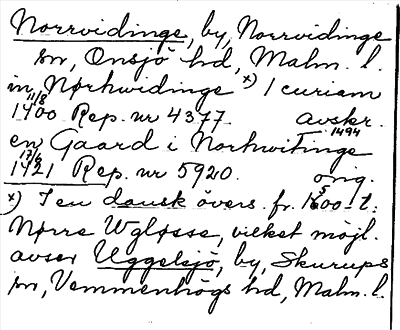 Norrvidinge, by, Norrvidinge
sn, Onsjö hd, Malm. l.
in Nørhwidinge x) 1 curiam
11/8 1400 Rep. nr 4377. avskr. 1494
en Gaard i Norhwitinge
13/6 1421 Rep. nr 5920. orig.
x) I en dansk övers. fr. 1500-t:
Nørre Wgløsse, vilket möjl.
avser Uggelsjö, by, Skurups
sn, Vemmenhögs hd, Malm. l.